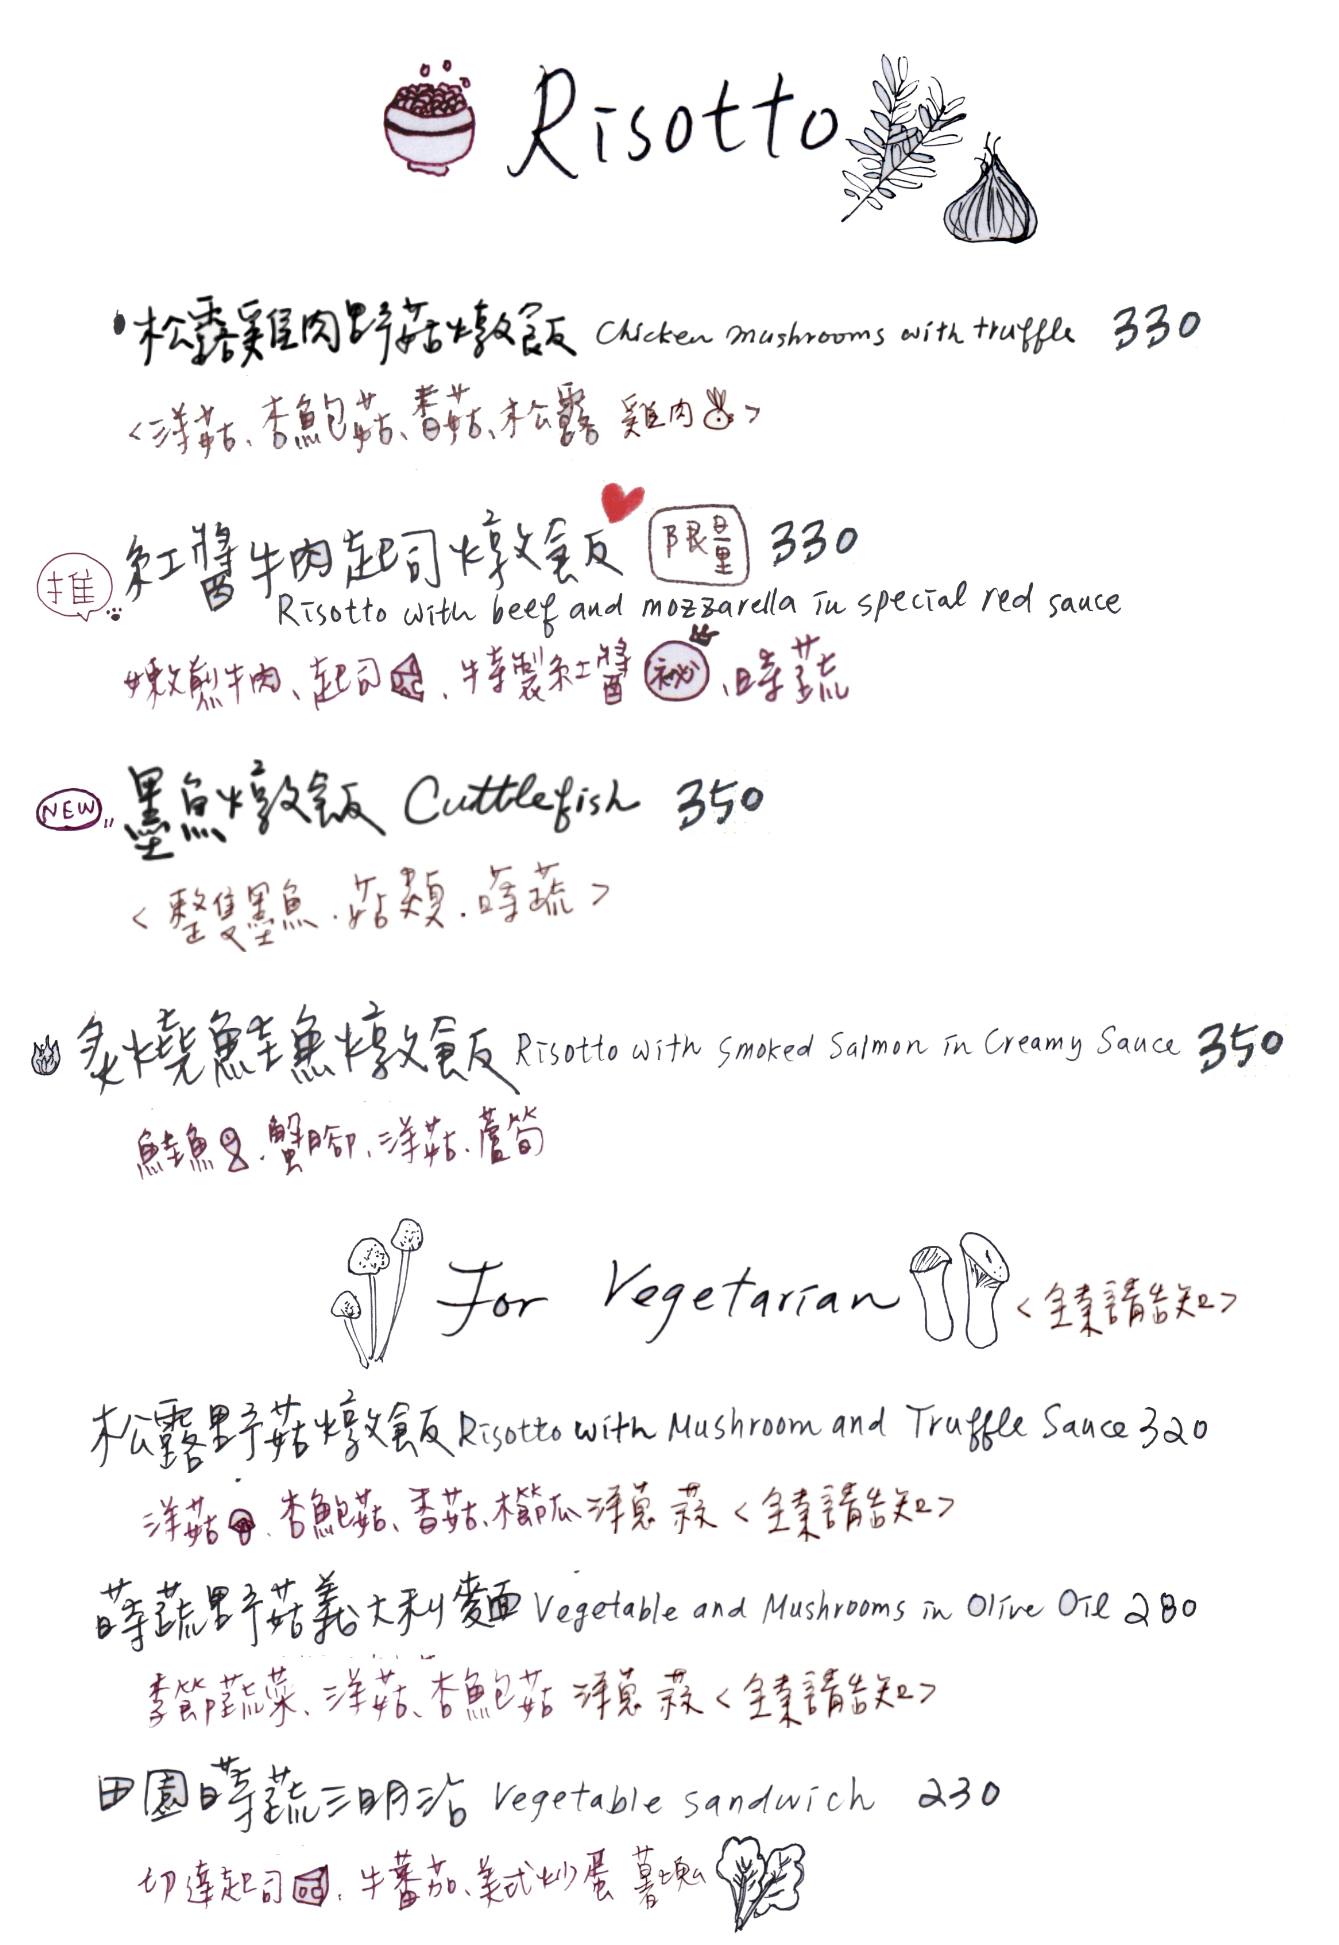 Risotto
松露雞肉野菇燉飯 Chicken mushrooms with truffle 330
<洋菇、杏鮑菇、香菇、松露 雞肉>
推 紅醬牛肉起司燉飯 限量 330
Risotto with beef and mozzarella in special red sauce
嫩煎牛肉、起司、特製紅醬 祕、時蔬
NEW 墨魚燉飯 Cuttlefish 350
<整隻墨魚.菇類.時蔬>
炙燒鮭魚燉飯 Risotto with Smoked Salmon in Creamy Sauce 350
鮭魚、蟹腳、洋菇、蘆筍
For Vegetarian <全素請告知>
松露野菇燉飯 Risotto with Mushroom and Truffle Sauce 320
洋菇、杏鮑菇、香菇、櫛瓜 洋蔥 蒜 <全素請告知>
蒔蔬野菇義大利麵 Vegetable and Mushrooms in Olive Oil 280
季節蔬菜、洋菇、杏鮑菇 洋蔥 蒜 <全素請告知>
田園蒔蔬三明治 Vegetable sandwich 230
切達起司、牛蕃茄、美式炒蛋 薯塊